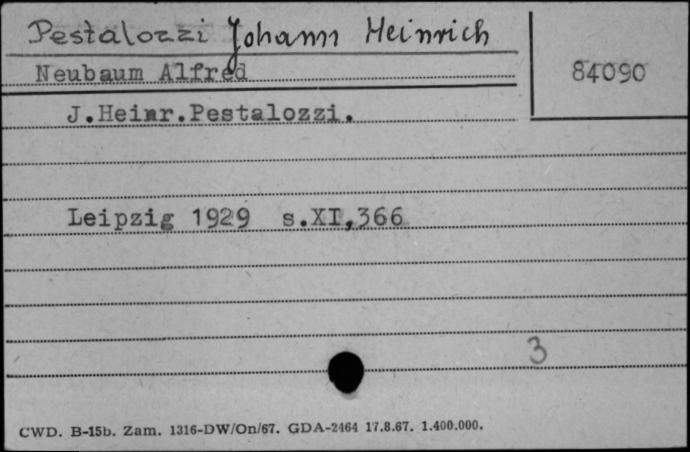 Pestalozzi Johann Heinrich
84090
Neubaum Alfred
J.Heinr.Pestalozzi.
Leipzig 1929 s.XI,366
3
CWD. B-15b. Zam. 1316-DW/On/67. GDA-2464 17.8.67. 1.400.000.